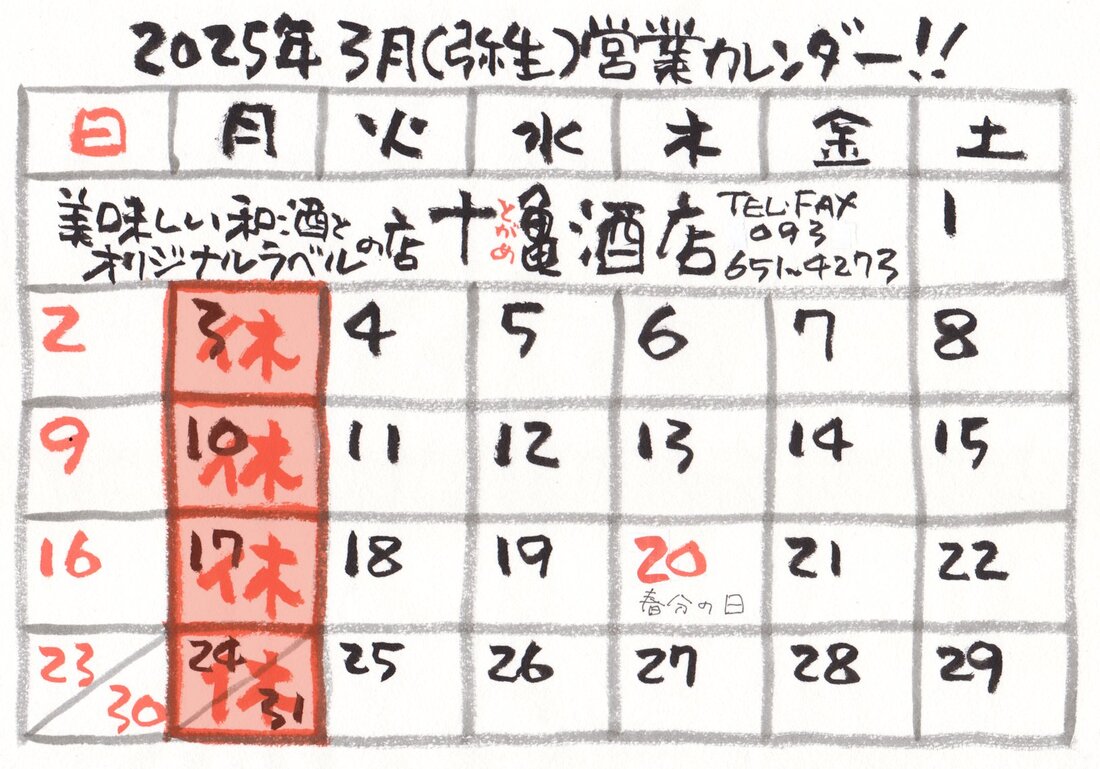 2025年 3月(弥生)営業カレンダー!!
日 月 火 水 木 金 土
美味しい和酒と
オリジナルラベルの店
十亀酒店
とがめ
TEL・FAX
093
651~4273
1
2 3休 4 5 6 7 8
9 10休 11 12 13 14 15
16 17休 18 19 20 21 22
春分の日
23 24休 25 26 27 28 29
30 31